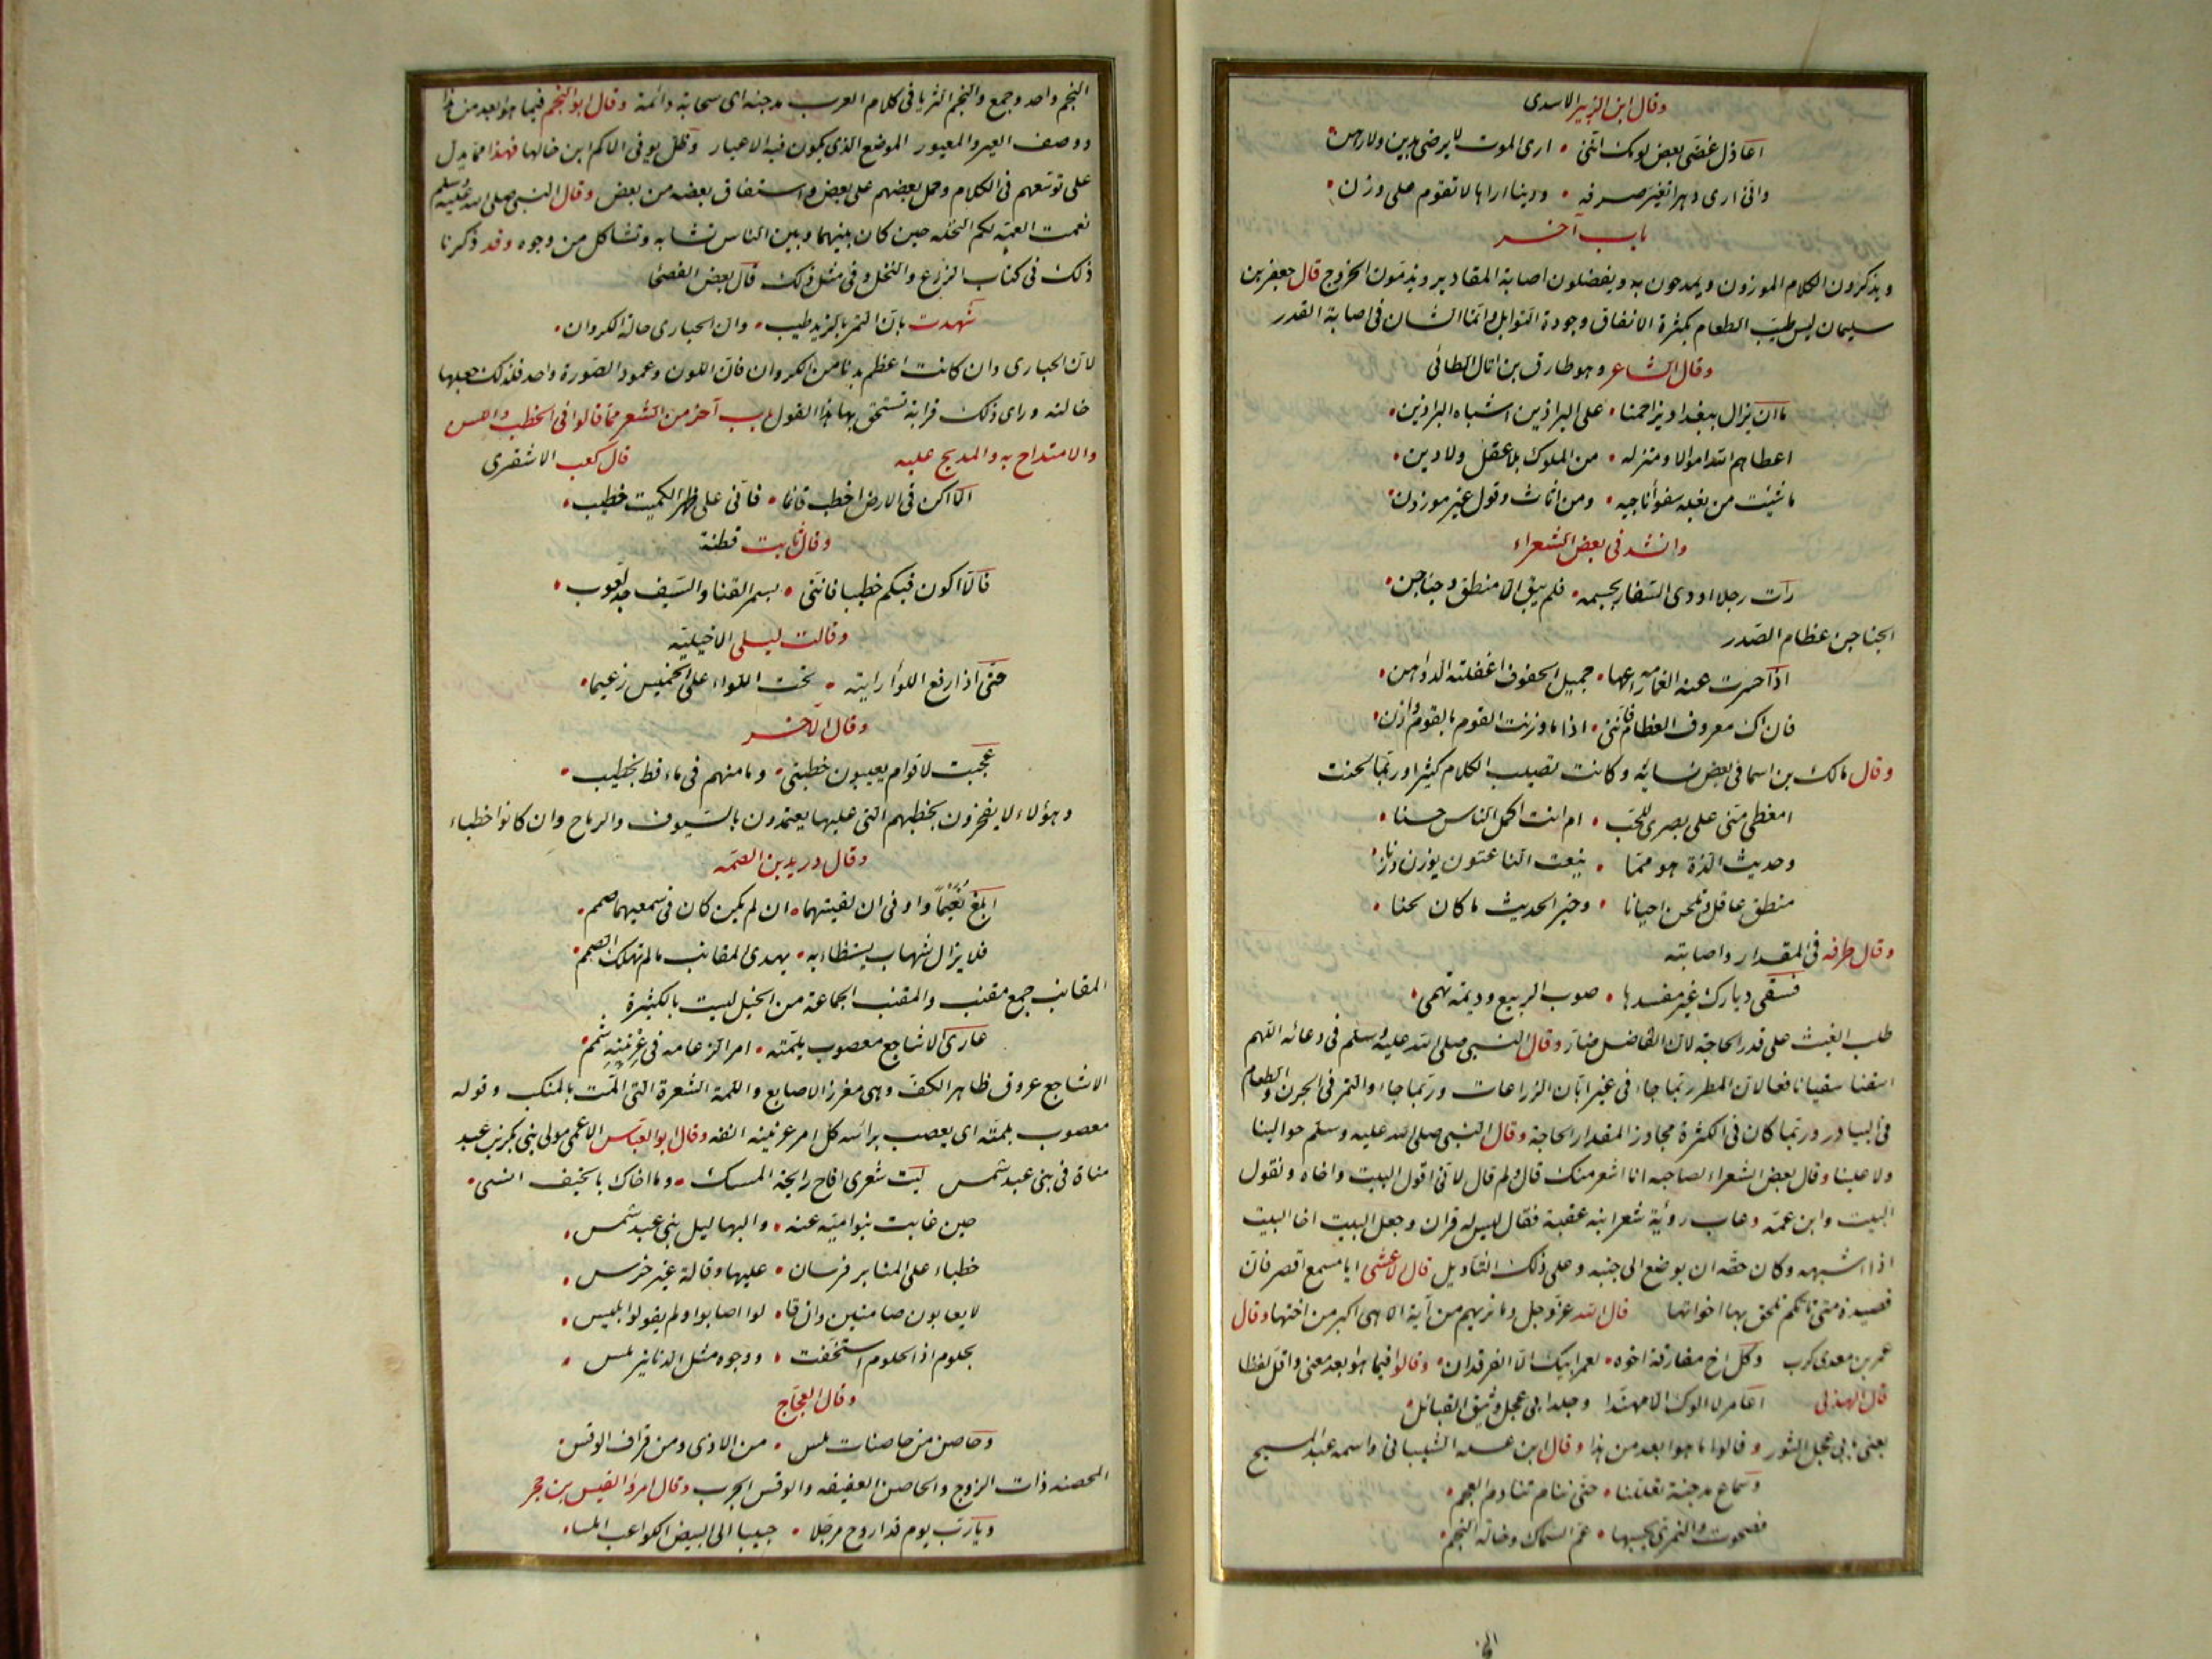 وقال ابن الزبير الاسدى
اعاذل غضى بعض لومك اننى • ارى الموت لا يرضى بدين ولا رهن
وانى ارى دهرا تغير صرفه • ودينا اراها لا تقوم على وزن
باب آخر
ويذكرون الكلام الموزون ويمدحون به ويفضلون اصابة المقادير ويذمون الخروج قال جعفر بن
سليمان ليس طيب الطعام بكثرة الانفاق وجودة التوابل وانما الشان فى اصابة القدر
وقال الشاعر وهو طارق بن اثال الطائى
ما ان يزال ببغداد يزاحمنا • على البراذين اشباه البراذين
اعطاهم الله اموالا ومنزلة • من الملوك بلا عقل ولا دين
ما شئت من بغلة سفوا ناجيه • ومن اثاث وقول غير موزون
وانشد فى بعض الشعراء
رات رجلا اودى السفار بجسمه • فلم يبق الا منطق وجناجن
الجناجن عظام الصدر
اذا حسرت عنه العمامة راعها • جميل الحفوف اغفلته الدواهن
فان اك معروق العظام فاننى • اذا ما وزنت القوم بالقوم وازن
وقال مالك بن اسما فى بعض نسائه وكانت تصيب الكلام كثيرا وربما لحنت
امغطى منى على بصرى للحب • ام انت اكمل الناس حسنا
وحديث الذه هو مما • ينعت الناعتون يوزن وزنا
منطق عاقل وتلحن احيانا • وخير الحديث ما كان لحنا
وقال طرفه فى المقدار واصابته
فسقى ديارك غير مفسدها • صوب الربيع وديمة تهمى
طلب الغيث على قدر الحاجة لان الفاضل ضار وقال النبى صلى الله عليه وسلم فى دعائه اللهم
اسقنا سقيا نافعا لان المطر ربما جاء فى غير ابان الزراعات وربما جاء والتمر فى الجرن والطعام
فى البيادر وربما كان فى الكثرة مجاوز المقدار الحاجة وقال النبى صلى الله عليه وسلم حوالينا
ولا علينا وقال بعض الشعراء لصاحبه انا اشعر منك قال ولم قال لانى اقول البيت واخاه وتقول
البيت وابن عمه وعاب رؤية شعر ابنه عقبة فقال ليس له قران وجعل البيت اخا البيت
اذا اشبهه وكان حقه ان يوضع الى جنبه وعلى ذلك التاويل قال الاعشى ابا مسمع اقصر فان
قصيدة متى تاتكم تلحق بها اخواتها قال الله عز وجل وما نريهم من آية الا هى اكبر من اختها وقال
عمر بن معدى كرب وكل اخ مفارقه اخوه • لعمر ابيك الا الفرقدان • وقالوا فيما هو ابعد معنى واقل لفظا
قال الهذلى اعامر لا الوك الا مهندا وجلد ابى عجل وثيق القبائل
يعنى بابى عجل الثور وقالوا ما هو ابعد من هذا وقال ابن عسله الشيبانى واسمه عبد المسيح
وسماع مدجنة تعللنا • حتى ننام تنادم العجم
فصحوت والنمرى يحسبها • عم السماك وخالة النجم
النجم واحد وجمع والنجم الثريا فى كلام العرب مدجنه اى سحابة دائمة وقال ابو النجم فيما هو ابعد من هذا
ووصف العير والمعيور الموضع الذى يكون فيه الاعيار وظل يوفى الاكم ابن خالها فهذا مما يدل
على توسعهم فى الكلام وحمل بعضهم على بعض واشتقاق بعضه من بعض وقال النبى صلى الله عليه وسلم
نعمت العمة لكم النخله حين كان بينهما وبين الناس تشابه وتشاكل من وجوه وقد ذكرنا
ذلك فى كتاب الزرع والنخل وفى مثل ذلك قال بعض الفصحا
شهدت بان التمر بالزبد طيب • وان الحبارى خالة الكروان
لان الحبارى وان كانت اعظم بدنا من الكروان فان اللون وعمود الصورة واحد فلذلك جعلها
خالته وراى ذلك قرابة تستحق بها هذا القول باب آخر من الشعر مما قالوا فى الخطب واللسن
والامتداح به والمديح عليه قال كعب الاشقرى
الا اكن فى الارض اخطب قائما • فانى على ظهر الكميت خطيب
وقال ثابت قطنة
فالا اكون فيكم خطيبا فاننى • بسمر القنا والسيف جد لعوب
وقالت ليلى الاخيليه
حتى اذا رفع اللواء رايته • تحت اللواء على الخميس زعيما
وقال الآخر
عجبت لاقوام يعيبون خطبتى • وما منهم فى ماقط بخطيب
وهؤلاء لا يفخرون بخطبهم التى عليها يعتمدون بالسيوف والرماح وان كانوا خطباء
وقال دريد بن الصمه
ابلغ نعيما واوفى ان لقيتهما • ان لم يكن كان فى سمعيهما صمم
فلا يزال شهاب يستضاء به • يهدى المقانب ما لم تهلك الصمم
المقانب جمع مقنب والمقنب الجماعة من الخيل ليست بالكثيرة
عارى الاشاجع معصوب بلمته • امر الزعامه فى عرنينه شمم
الاشاجع عروق ظاهر الكف وهى مغرز الاصابع واللمة الشعرة التى المت بالمنكب وقوله
معصوب بلمته اى يعصب برائسه كل امر عرنينه انفه وقال ابو العباس الاعمى مولى بنى بكر بن عبد
مناة فى بنى عبد شمس ليت شعرى افاح رايحة المسك • وما اخاك بالخيف انسى
حين غابت بنو امية عنه • والبهاليل بنى عبد شمس
خطباء على المنابر فرسان • عليها وقالة غير خرس
لا يعابون صامتين وان قا • لوا اصابوا ولم يقولوا بلبس
بحلوم اذا الحلوم استخفت • ووجوه مثل الدنانير ملس
وقال العجاج
وحاصن من حاصنات ملس • من الاذى ومن قراف الوقس
المحصنه ذات الزوج والحاصن العفيفه والوقس الجرب وقال امرؤ القيس بن حجر
ويارب يوم قد اروح مرجلا • حبيبا الى البيض الكواعب املسا